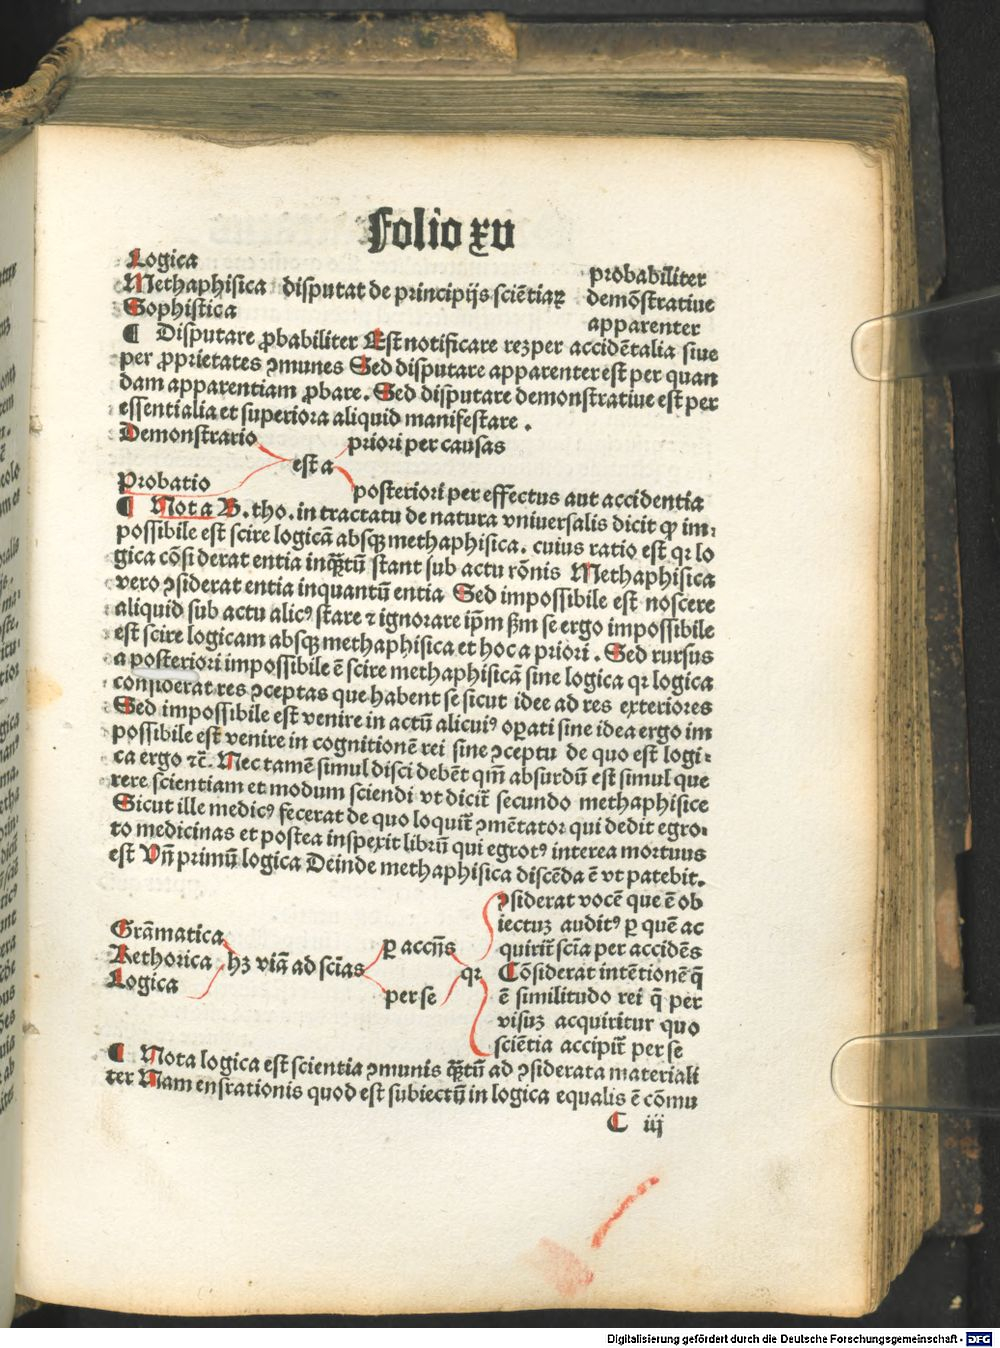 Folio xv
Logica
Methaphisica disputat de principijs sciẽtiaꝝ
Sophistica
probabiliter
demõstratiue
apparenter
¶ Disputare ꝓbabiliter Est notificare reꝫ per accidẽtalia siue
per ꝓprietates ꝯmunes Sed disputare apparenter est per quan
dam apparentiam ꝓbare. Sed disputare demonstratiue est per
essentialia et superiora aliquid manifestare .
Demonstratio
Probatio
est a
priori per causas
posteriori per effectus aut accidentia
¶ Nota B. tho. in tractatu de natura vniuersalis dicit ꝙ im⸗
possibile est scire logicã absqꝫ methaphisica. cuius ratio est qꝛ lo
gica cõsiderat entia inqꝫtũ stant sub actu rõnis Methaphisica
vero ꝯsiderat entia inquantũ entia Sed impossibile est noscere
aliquid sub actu alicꝰ stare ⁊ ignorare ip̃m ẜm se ergo impossibile
est scire logicam absqꝫ methaphisica et hoc a priori . Sed rursus
a posteriori impossibile ẽ scire methaphisicã sine logica qꝛ logica
considerat res ꝯceptas que habent se sicut idee ad res exteriores
Sed impossibile est venire in actũ alicuiꝰ oꝑati sine idea ergo im
possibile est venire in cognitionẽ rei sine ꝯceptu de quo est logi⸗
ca ergo ⁊c̃. Nec tamẽ simul disci debẽt qm̃ absurdũ est simul que
rere scientiam et modum sciendi vt dicit̃ secundo methaphisice
Sicut ille medicꝰ fecerat de quo loquit̃ ꝯmẽtator qui dedit egro⸗
to medicinas et postea inspexit librũ qui egrotꝰ interea mortuus
est Vñ primũ logica Deinde methaphisica discẽda ẽ vt patebit.
Grãmatica
Rethorica
Logica
hꝫ viã ad sciãs
ꝑ accñs
per se
qꝛ
ꝯsiderat vocẽ que ẽ ob
iectuꝫ auditꝰ ꝑ quẽ ac
quirit̃ sciã per accidẽs
Cõsiderat intẽtionẽ q̃
ẽ similitudo rei q̃ per
visuꝫ acquiritur quo
sciẽtia accipit̃ per se
¶ Nota logica est scientia ꝯmunis qꝫtũ ad ꝯsiderata materiali
ter Nam ens rationis quod est subiectũ in logica equalis ẽ cõmu
C iij
Digitalisierung gefördert durch die Deutsche Forschungsgemeinschaft - DFG